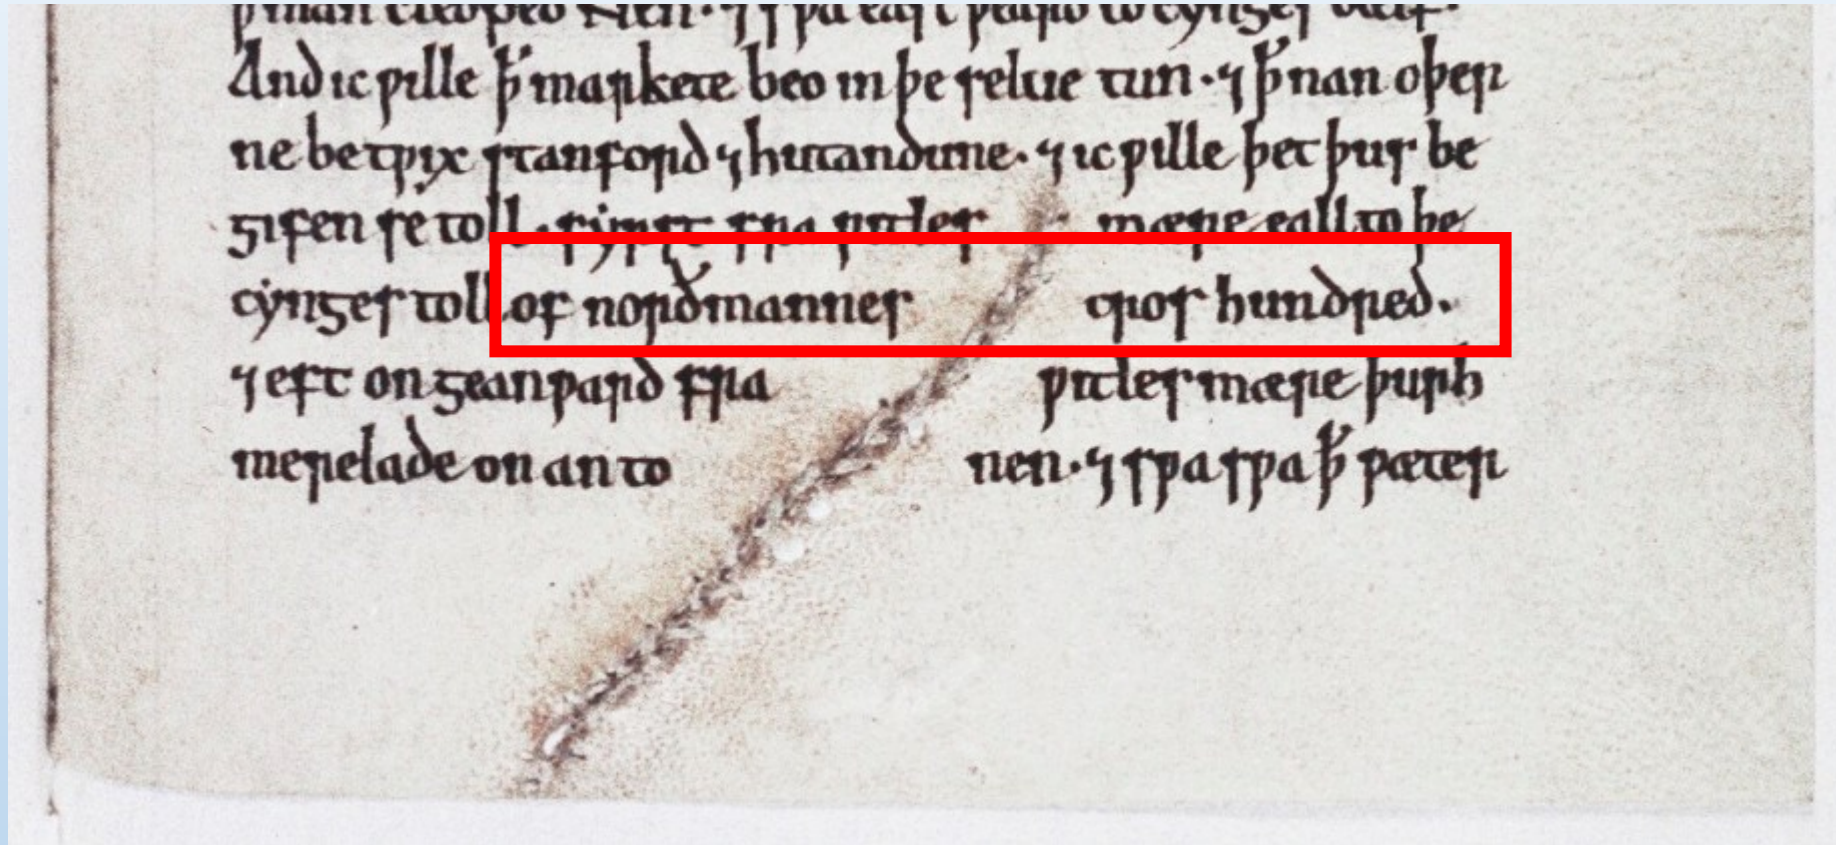 ƿman cleoped Nen. ⁊ spa east ƿeard to cynges delf.
And ic ƿille ꝥ markete beo in þe selue tun. ⁊ ꝥ nan oþer
ne betƿix stanford ⁊ huntandune. ⁊ ic ƿille þet þus be
gifen se toll. fyrst fra ƿitlesmære eall to þe
cynges toll of norðmannes cros hundred.
⁊ eft ongeanƿard fra ƿitlesmære þurh
merelade on an to nen. ⁊ sƿa sƿa ꝥ ƿæter